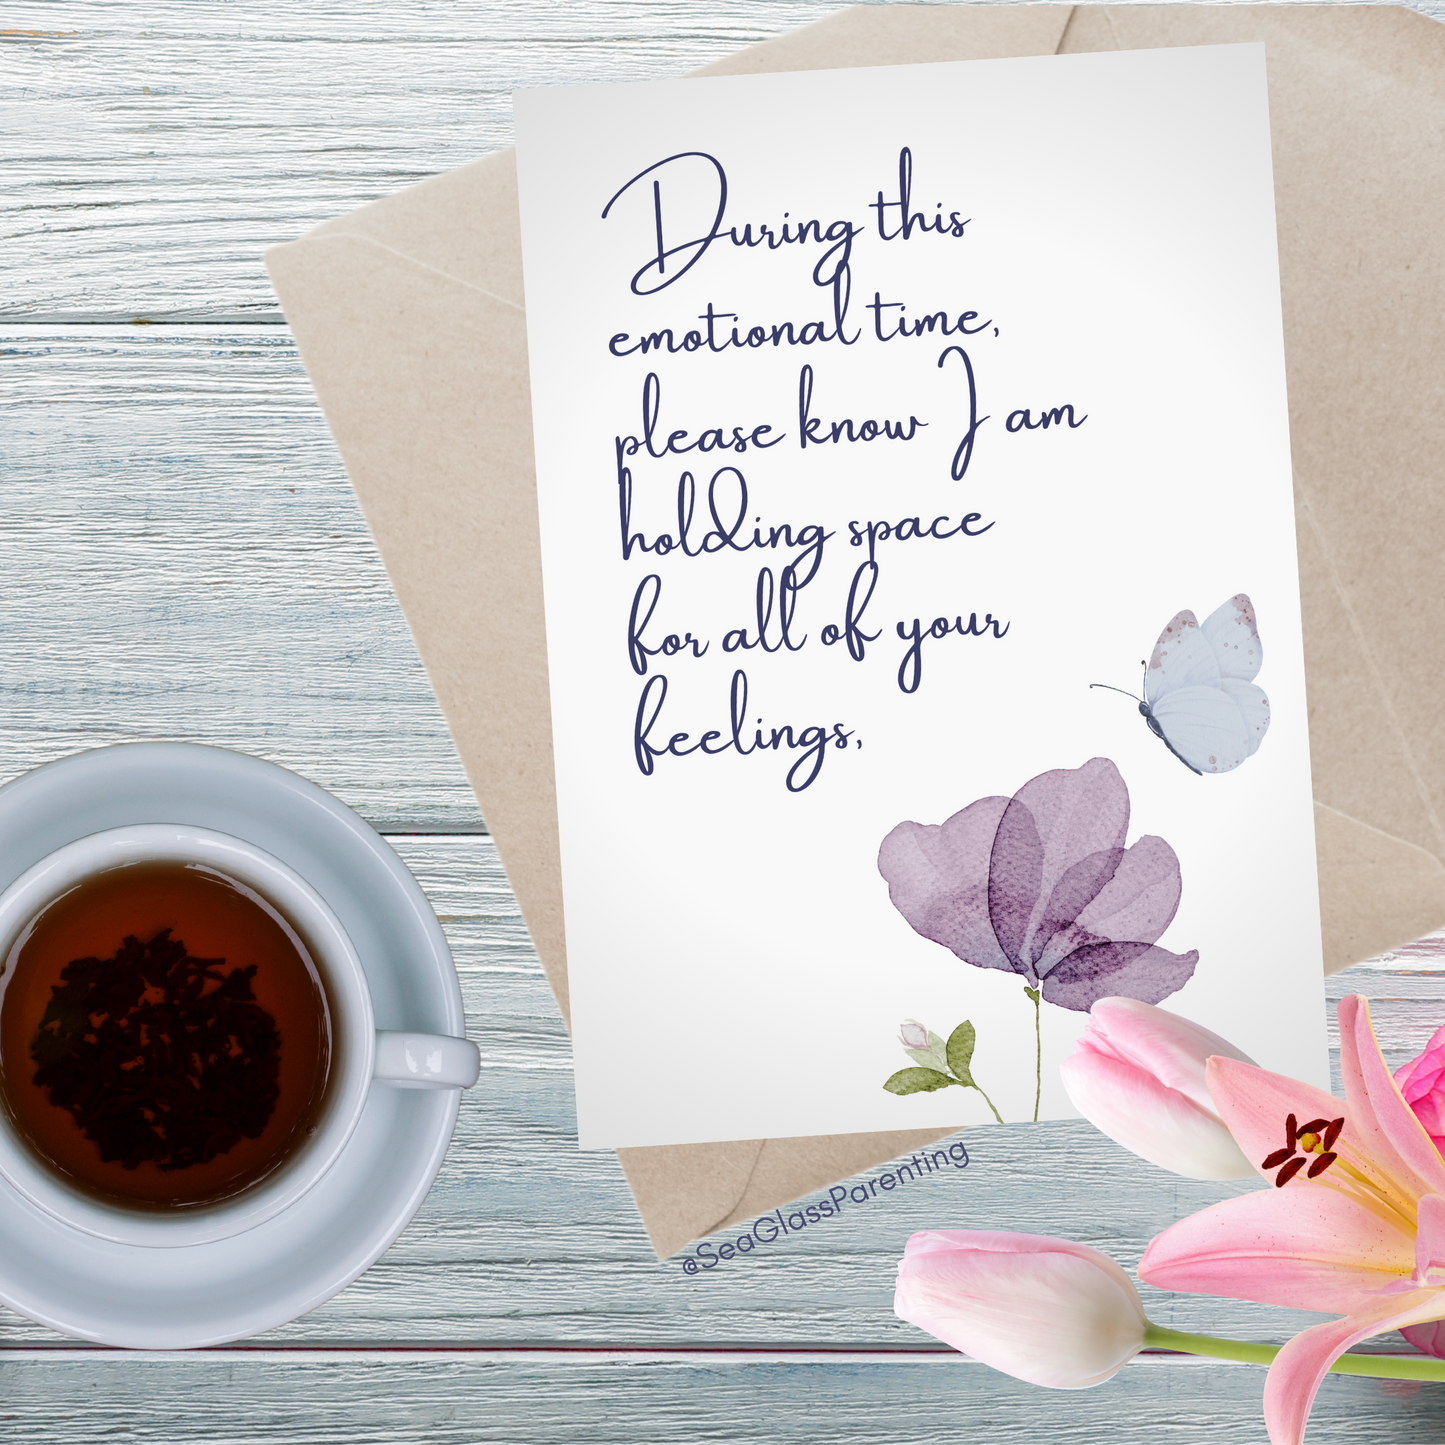 During this
emotional time,
please know I am
holding space
for all of your
feelings,
@SeaGlassParenting